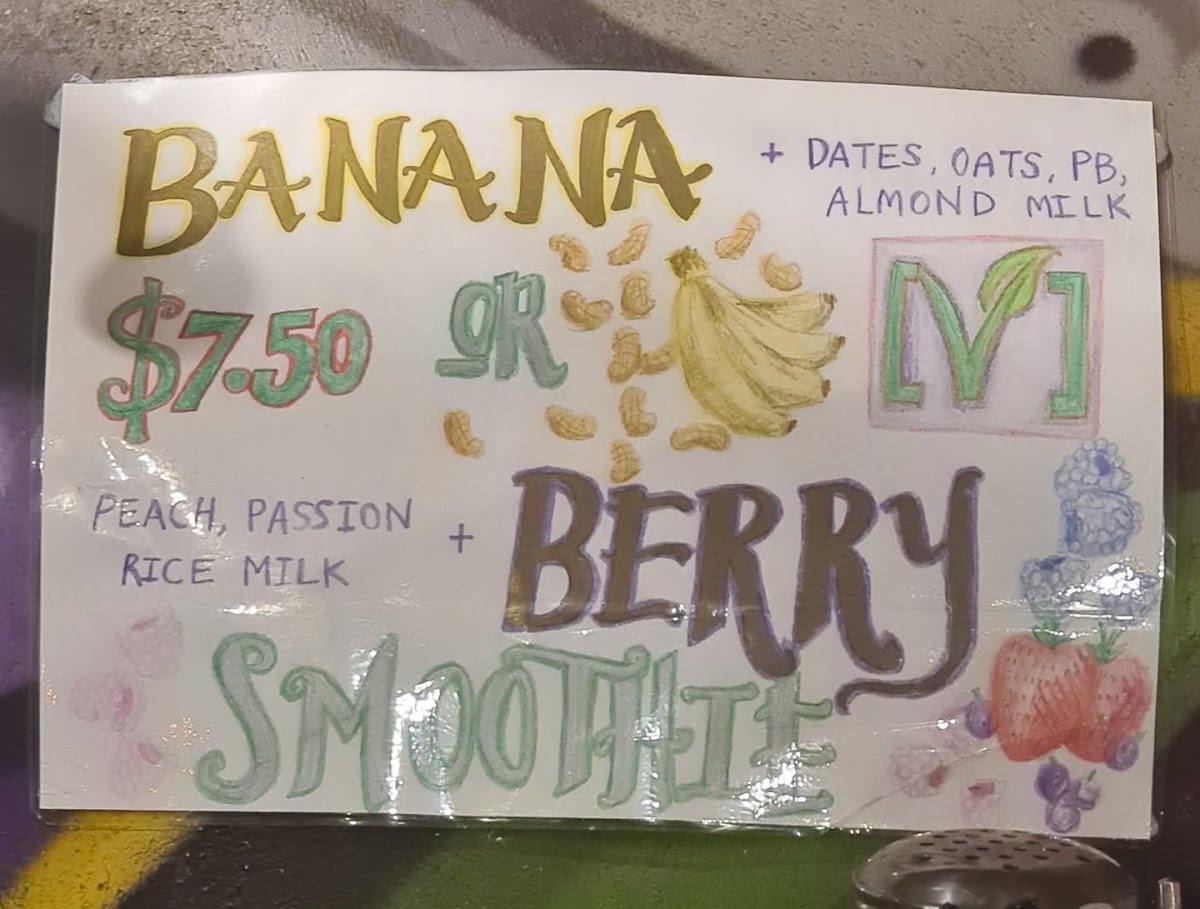 BANANA
+ DATES, OATS, PB,
ALMOND MILK
$7.50
OR
[V]
PEACH, PASSION
RICE MILK
+ BERRY
SMOOTHIE